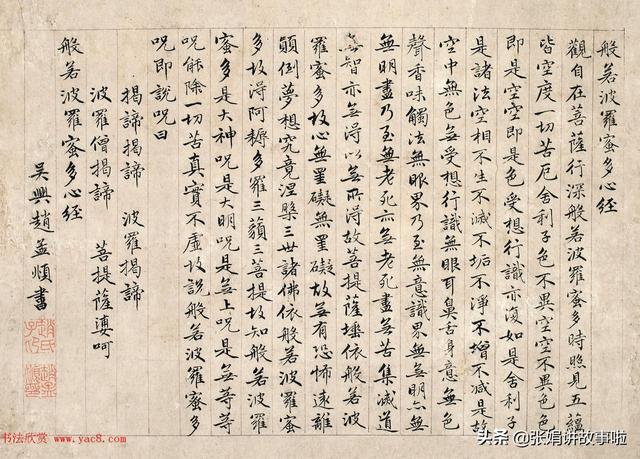 般若波羅蜜多心経
觀自在菩薩行深般若波羅蜜多時照見五蘊
皆空度一切苦厄舍利子色不異空空不異色色
即是空空即是色受想行識亦復如是舍利子
是諸法空相不生不滅不垢不淨不增不減是故
空中無色無受想行識無眼耳鼻舌身意無色
聲香味觸法無眼界乃至無意識界無無明亦無
無明盡乃至無老死亦無老死盡無苦集滅道
無智亦無得以無所得故菩提薩埵依般若波
羅蜜多故心無罣礙無罣礙故無有恐怖遠離
顛倒夢想究竟涅槃三世諸佛依般若波羅蜜
多故得阿耨多羅三藐三菩提故知般若波羅
蜜多是大神咒是大明咒是無上咒是無等等
咒能除一切苦真實不虛故說般若波羅蜜多
咒即說咒曰
揭諦揭諦 波羅揭諦
波羅僧揭諦 菩提薩婆呵
般若波羅蜜多心経
吳興趙孟頫書
书法欣赏 www.yac8.com
头条 @张娟讲故事啦